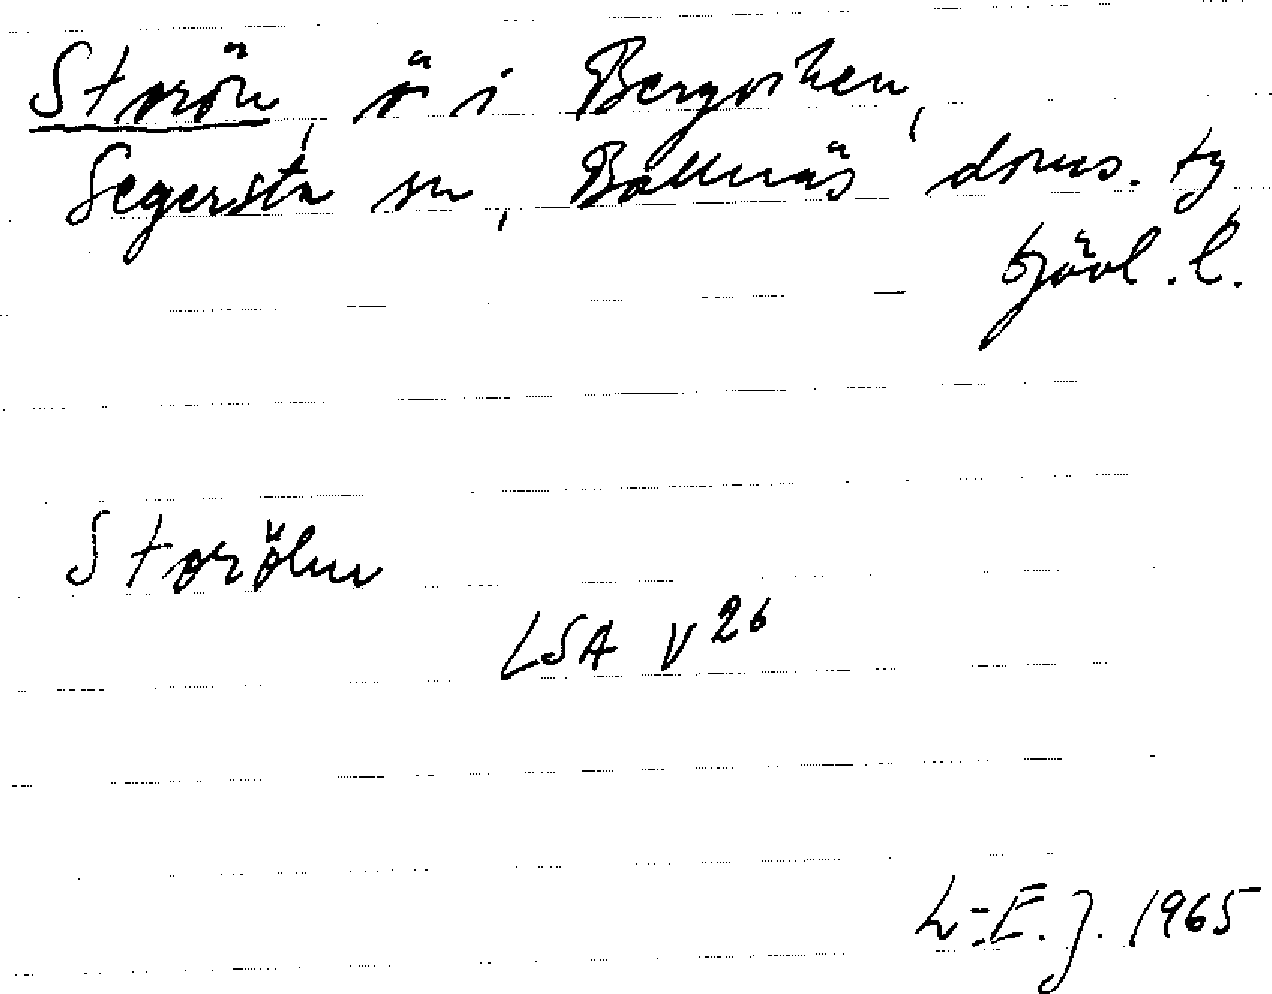 Storön, ö i Bergviken,
Segersta sn, Bollnäs doms. tg
Gävl. l.
Storöhn
LSA V 26
L-E. J. 1965